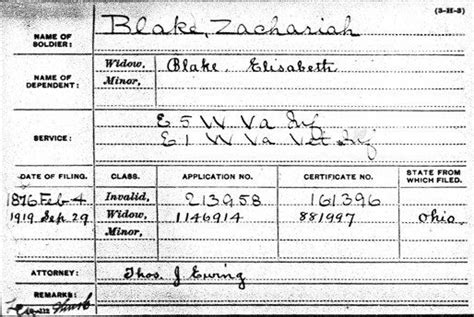 (3-H-3)
NAME OF SOLDIER: Blake, Zachariah
NAME OF DEPENDENT: Widow, Blake, Elisabeth
Minor,
SERVICE: E 5 W Va Inf
E 1 W Va Vet Inf
DATE OF FILING. CLASS. APPLICATION NO. CERTIFICATE NO. STATE FROM WHICH FILED.
1876 Feb 4 Invalid, 213958 161396
1919 Sep 29 Widow, 1146914 881997 Ohio
Minor,
ATTORNEY: Thos. J Ewing
REMARKS: